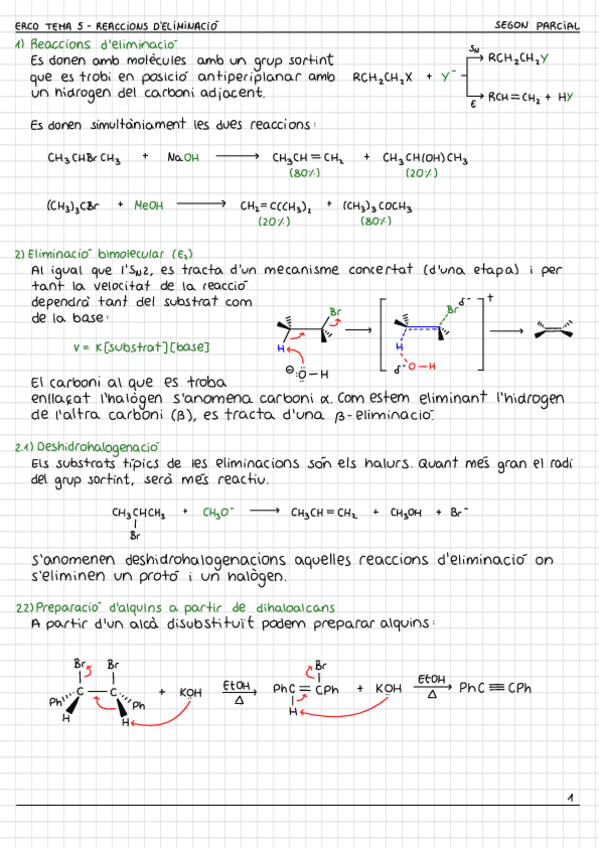 ERCO TEMA 5 - REACCIONS D'ELIMINACIÓ SEGON PARCIAL
1) Reaccions d'eliminació
Es donen amb molècules amb un grup sortint
que es trobi en posició antiperiplanar amb
un hidrogen del carboni adjacent.
RCH₂CH₂X + Y⁻
SN
RCH₂CH₂Y
E
RCH=CH₂ + HY
Es donen simultàniament les dues reaccions:
CH₃CHBrCH₃ + NaOH ⟶ CH₃CH=CH₂ + CH₃CH(OH)CH₃
(80%) (20%)
(CH₃)₃CBr + MeOH ⟶ CH₂=C(CH₃)₂ + (CH₃)₃COCH₃
(20%) (80%)
2) Eliminació bimolecular (E₂)
Al igual que l'SN2, es tracta d'un mecanisme concertat (d'una etapa) i per
tant la velocitat de la reacció
dependrà tant del substrat com
de la base:
v = K[substrat][base]
Br
H
⊖:Ö-H
Br δ⁻
H
δ⁻ O-H
+
El carboni al que es troba
enllaçat l'halògen s'anomena carboni α. Com estem eliminant l'hidrogen
de l'altra carboni (β), es tracta d'una β-eliminació.
2.1) Deshidrohalogenació
Els substrats típics de les eliminacions són els halurs. Quant més gran el radi
del grup sortint, serà més reactiu.
CH₃CHCH₃ + CH₃O⁻ ⟶ CH₃CH=CH₂ + CH₃OH + Br⁻
Br
S'anomenen deshidrohalogenacions aquelles reaccions d'eliminació on
s'eliminen un protó i un halògen.
2.2) Preparació d'alquins a partir de dihaloalcans
A partir d'un alcà disubstituït podem preparar alquins:
Br Br Br
Ph C - C Ph + KOH EtOH Δ PhC=CPh + KOH EtOH Δ PhC≡CPh
H H H
1